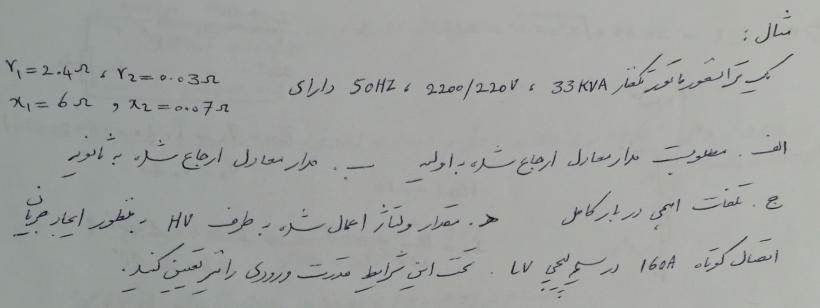 مثال:
یک ترانسفورماتور تکفاز 33 KVA ، 2200/220V ، 50HZ دارای r₁=2.4Ω ، r₂=0.03Ω
x₁=6Ω ، x₂=0.07Ω
الف. مطلوبست مدار معادل ارجاع شده به اولیه ب. مدار معادل ارجاع شده به ثانویه
ج. تلفات اهمی در بار کامل د. مقدار ولتاژ اعمال شده به طرف HV به منظور ایجاد جریان
اتصال کوتاه 160A در سیم پیچی LV. تحت این شرایط قدرت ورودی را نیز تعیین کنید.